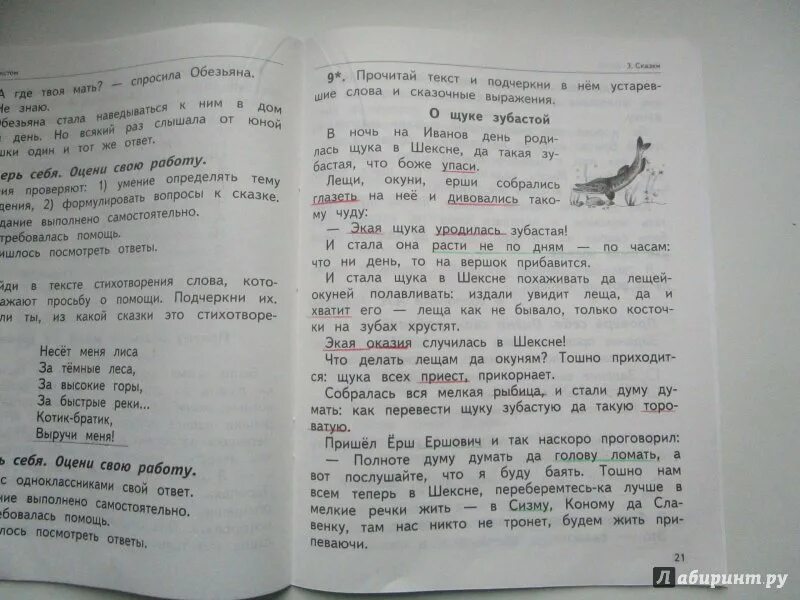 кстом
А где твоя мать? — спросила Обезьяна.
Не знаю.
Обезьяна стала наведываться к ним в дом
день. Но всякий раз слышала от юной
шки один и тот же ответ.
ерь себя. Оцени свою работу.
ия проверяют: 1) умение определять тему
дения, 2) формулировать вопросы к сказке.
дание выполнено самостоятельно.
требовалась помощь.
ишлось посмотреть ответы.
йди в тексте стихотворения слова, кото-
ажают просьбу о помощи. Подчеркни их.
ли ты, из какой сказки это стихотворе-
Несёт меня лиса
За тёмные леса,
За высокие горы,
За быстрые реки...
Котик-братик,
Выручи меня!
ь себя. Оцени свою работу.
с одноклассниками свой ответ.
ние выполнено самостоятельно.
ебовалась помощь.
лось посмотреть ответы.
3. Сказки
9*. Прочитай текст и подчеркни в нём устарев-
шие слова и сказочные выражения.
О щуке зубастой
В ночь на Иванов день роди-
лась щука в Шексне, да такая зу-
бастая, что боже упаси.
Лещи, окуни, ерши собрались
глазеть на неё и дивовались тако-
му чуду:
— Экая щука уродилась зубастая!
И стала она расти не по дням — по часам:
что ни день, то на вершок прибавится.
И стала щука в Шексне похаживать да лещей-
окуней полавливать: издали увидит леща, да и
хватит его — леща как не бывало, только косточ-
ки на зубах хрустят.
Экая оказия случилась в Шексне!
Что делать лещам да окуням? Тошно приходит-
ся: щука всех приест, прикорнает.
Собралась вся мелкая рыбица, и стали думу ду-
мать: как перевести щуку зубастую да такую торо-
ватую.
Пришёл Ёрш Ершович и так наскоро проговорил:
— Полноте думу думать да голову ломать, а
вот послушайте, что я буду баять. Тошно нам
всем теперь в Шексне, переберемтесь-ка лучше в
мелкие речки жить — в Сизму, Коному да Сла-
венку, там нас никто не тронет, будем жить при-
певаючи.
21
Лабиринт.ру